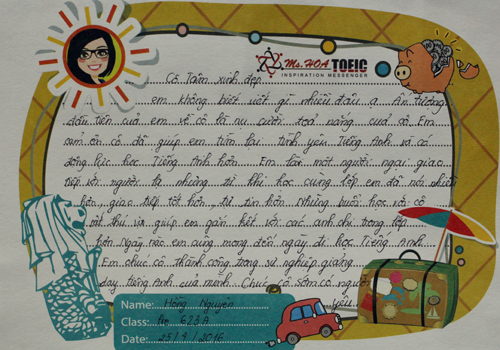 Ms. HOA TOEIC
INSPIRATION MESSENGER
Cô Trầm xinh đẹp
em không biết viết gì nhiều đâu ạ. Ấn tượng
đầu tiên của em về cô là nụ cười toả nắng của cô. Em
cảm ơn cô đã giúp em tìm lại tình yêu Tiếng Anh và có
động lực học Tiếng Anh hơn. Em là một người ngại giao
tiếp với người lạ nhưng từ khi học cùng lớp em đã nói nhiều
hơn, giao tiếp tốt hơn, tự tin hơn. Những buổi học với cô
rất thú vị, giúp em gắn kết với các anh chị trong lớp
hơn. Ngày nào em cũng mong đến ngày đi học Tiếng Anh.
Em chúc cô thành công trong sự nghiệp giảng
dạy tiếng Anh của mình. Chúc cô sớm có người
yêu
Name: Hồng Nguyên
Class: 623A
Date: 25/9/2016